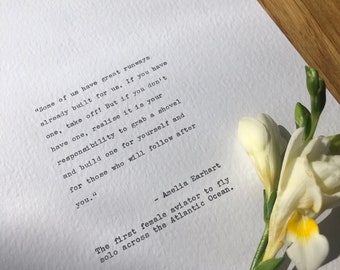 "Some of us have great runways
already built for us. If you have
one, take off! But if you don't
have one, realize it is your
responsibility to grab a shovel
and build one for yourself and
for those who will follow after
you."
- Amelia Earhart
The first female aviator to fly
solo across the Atlantic Ocean.